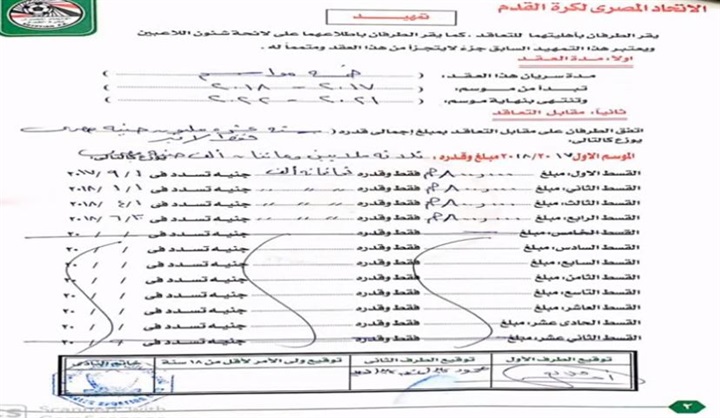 الاتحاد المصرى لكرة القدم
تمهيد
يقر الطرفان بأهليتهما للتعاقد . كما يقر الطرفان باطلاعهما على لائحة شئون اللاعبين
ويعتبر هذا التمهيد السابق جزء لا يتجزأ من هذا العقد ومتمما له .
اولا: مدة العقد
مدة سريان هذا العقد : ( خمسة مواسم )
تبدأ من موسم: ( ٢٠١٧ - ٢٠١٨ )
وتنتهى بنهاية موسم: ( ٢٠٢١ - ٢٠٢٢ )
ثانيا: مقابل التعاقد
اتفق الطرفان على مقابل التعاقد بمبلغ إجمالى قدره ( ستة عشر مليون جنيه مصرى
فقط لا غير
يوزع كالتالى:
الموسم الاول ٢٠١٧/٢٠١٨ مبلغ وقدره : ثلاثة ملايين ومائتا ألف جنيه يوزع كالتالى:
القسط الأول: مبلغ ٨٠٠٠٠٠ فقط وقدره ثمانمائة ألف جنيه تسدد فى ٢٠١٧/٩/١
القسط الثانى: مبلغ ٨٠٠٠٠٠ فقط وقدره " " " جنيه تسدد فى ٢٠١٨/١/١
القسط الثالث: مبلغ ٨٠٠٠٠٠ فقط وقدره " " " جنيه تسدد فى ٢٠١٨/٤/١
القسط الرابع: مبلغ ٨٠٠٠٠٠ فقط وقدره " " " جنيه تسدد فى ٢٠١٨/٦/٣٠
القسط الخامس: مبلغ فقط وقدره جنيه تسدد فى / / ٢٠
القسط السادس: مبلغ فقط وقدره جنيه تسدد فى / / ٢٠
القسط السابع: مبلغ فقط وقدره جنيه تسدد فى / / ٢٠
القسط الثامن: مبلغ فقط وقدره جنيه تسدد فى / / ٢٠
القسط التاسع: مبلغ فقط وقدره جنيه تسدد فى / / ٢٠
القسط العاشر: مبلغ فقط وقدره جنيه تسدد فى / / ٢٠
القسط الحادى عشر: مبلغ فقط وقدره جنيه تسدد فى / / ٢٠
القسط الثانى عشر: مبلغ فقط وقدره جنيه تسدد فى / / ٢٠
توقيع الطرف الأول توقيع الطرف الثانى توقيع ولى الأمر لأقل من ١٨ سنة خاتم النادى
٢
CS Scanned with